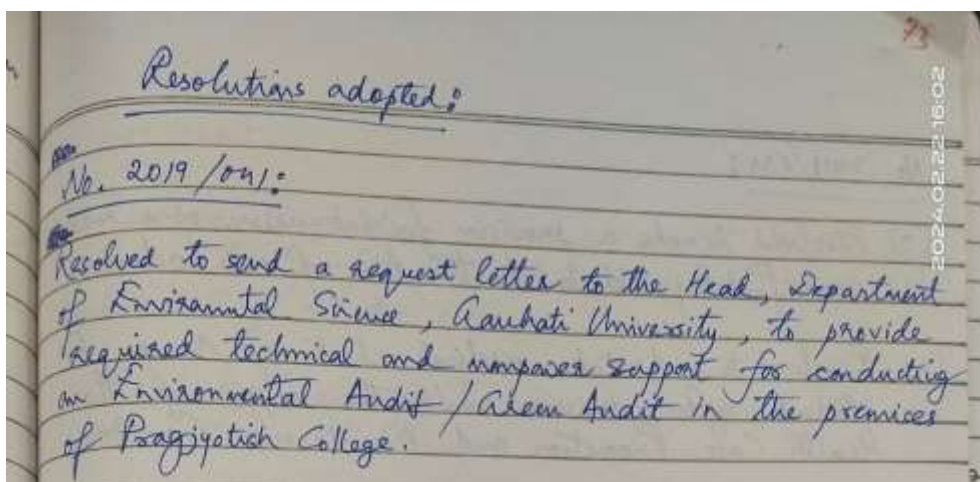 73
Resolutions adopted:
No. 2019/041:
Resolved to send a request letter to the Head, Department
of Enviranmtal Science, Gauhati University, to provide
required technical and manpower support for conducting
an Environmental Audit / Green Audit in the premices
of Pragjyotish College.
2024.02.22 16:02